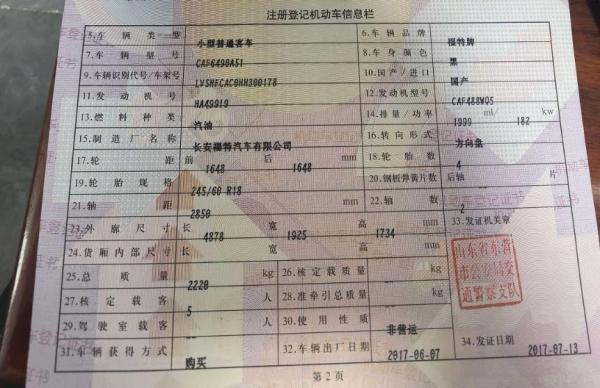 注册登记机动车信息栏
5.车辆类型 小型普通客车 6.车辆品牌 福特牌
7.车辆型号 CAF6490A51 8.车身颜色 黑
9.车辆识别代号/车架号 LVSHFCAC0HH300178 10.国产/进口 国产
11.发动机号 HA49919 12.发动机型号 CAF488WQ5
13.燃料种类 汽油 14.排量/功率 1999 ml/ 182 kw
15.制造厂名称 长安福特汽车有限公司 16.转向形式 方向盘
17.轮距 前 1648 后 1648 mm 18.轮胎数 4
19.轮胎规格 245/60 R18 20.钢板弹簧片数 后轴 片
21.轴距 2850 mm 22.轴数 2
23.外廓尺寸 长 4878 宽 1925 高 1734 mm 33.发证机关章
24.货厢内部尺寸 长 宽 高 mm
山东省东营
市公安局交
通警察支队
25.总质量 2220 kg 26.核定载质量 kg
27.核定载客 5 人 28.准牵引总质量 kg
29.驾驶室载客 人 30.使用性质 非营运
31.车辆获得方式 购买 32.车辆出厂日期 2017-06-07 34.发证日期 2017-07-13
第2页